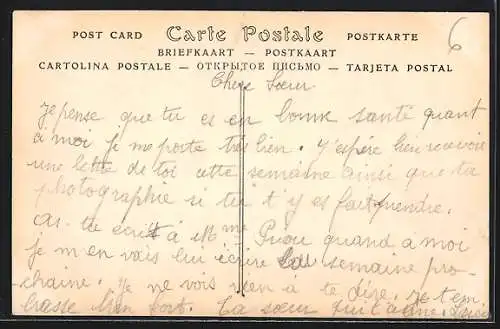 POST CARD Carte Postale POSTKARTE
BRIEFKAART — POSTKAART
CARTOLINA POSTALE — ОТКРЫТОЕ ПИСЬМО — TARJETA POSTAL
6
Chère Sœur
Je pense que tu es en bonne santé quant
à moi je me porte très bien. J'espère bien recevoir
une lettre de toi cette semaine ainsi que ta
photographie si tu t'y es fait prendre.
As-tu écrit à Mme quand à moi
je m'en vais lui écrire la semaine pro-
chaine. Je ne vois rien à te dire. Je t'em
brasse bien fort. Ta sœur qui t'aime.